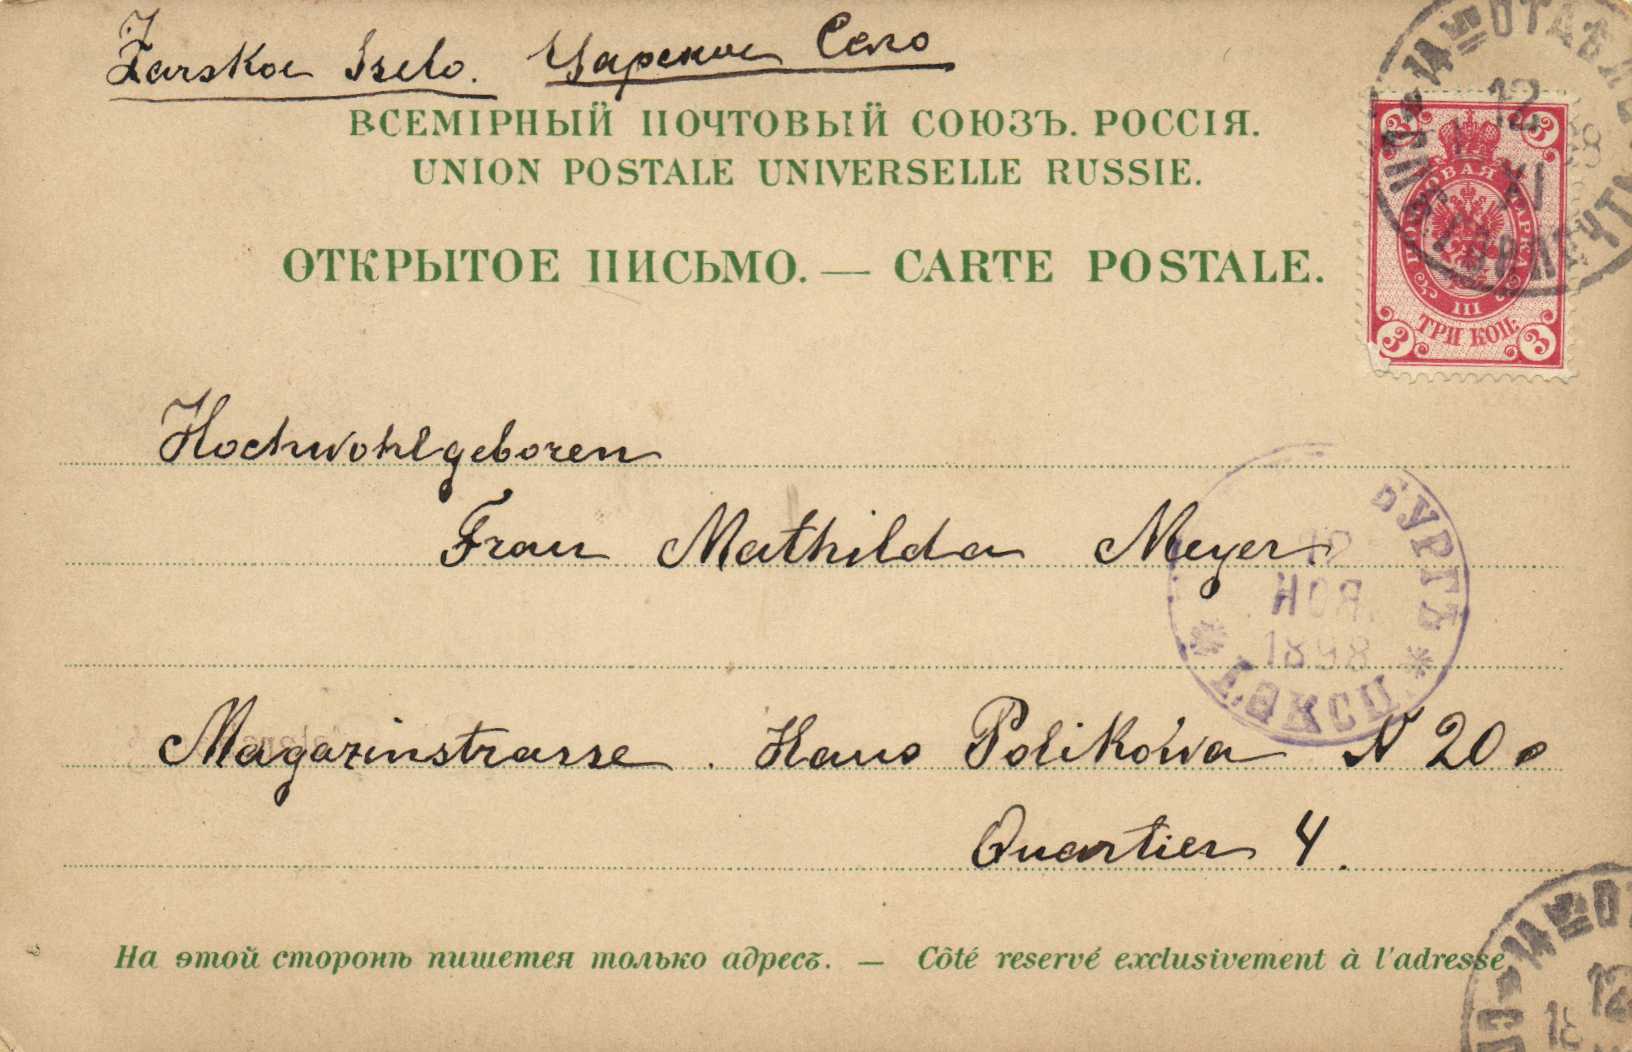 Zarskoe Szelo. Царское Село
ВСЕМІРНЫЙ ПОЧТОВЫЙ СОЮЗЪ. РОССІЯ.
UNION POSTALE UNIVERSELLE RUSSIE.
ОТКРЫТОЕ ПИСЬМО. — CARTE POSTALE.
3 3
ПОЧТОВАЯ МАРКА
III
ТРИ КОП.
3 3
12
XI
Hochwohlgeboren
Frau Mathilda Meyer
БУРГЪ
12
НОЯ.
1898
Magazinstrasse. Haus Polikówa N 20.
Quartier 4.
На этой сторонѣ пишется только адресъ. — Côté reservé exclusivement à l'adresse
12